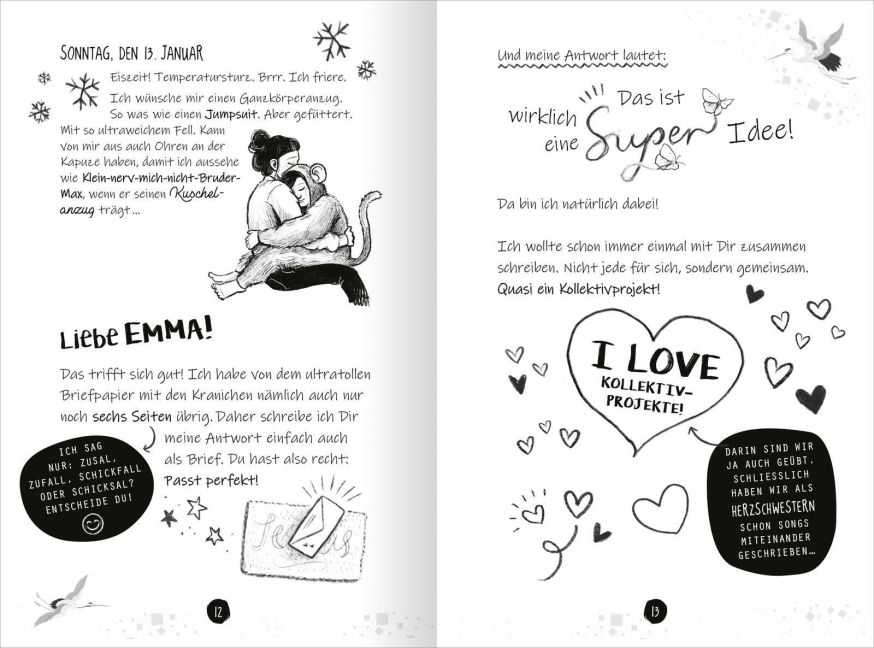 SONNTAG, DEN 13. JANUAR
Eiszeit! Temperatursturz. Brrr. Ich friere.
Ich wünsche mir einen Ganzkörperanzug.
So was wie einen Jumpsuit. Aber gefüttert.
Mit so ultraweichem Fell. Kann
von mir aus auch Ohren an der
Kapuze haben, damit ich aussehe
wie Klein-nerv-mich-nicht-Bruder-
Max, wenn er seinen Kuschel-
anzug trägt ...
Liebe EMMA!
Das trifft sich gut! Ich habe von dem ultratollen
Briefpapier mit den Kranichen nämlich auch nur
noch sechs Seiten übrig. Daher schreibe ich Dir
meine Antwort einfach auch
als Brief. Du hast also recht:
Passt perfekt!
ICH SAG
NUR: ZUSAL,
ZUFALL, SCHICKFALL
ODER SCHICKSAL?
ENTSCHEIDE DU!
12
Und meine Antwort lautet:
Das ist
wirklich
eine Super Idee!
Da bin ich natürlich dabei!
Ich wollte schon immer einmal mit Dir zusammen
schreiben. Nicht jede für sich, sondern gemeinsam.
Quasi ein Kollektivprojekt!
I LOVE
KOLLEKTIV-
PROJEKTE!
DARIN SIND WIR
JA AUCH GEÜBT.
SCHLIESSLICH
HABEN WIR ALS
HERZSCHWESTERN
SCHON SONGS
MITEINANDER
GESCHRIEBEN...
13